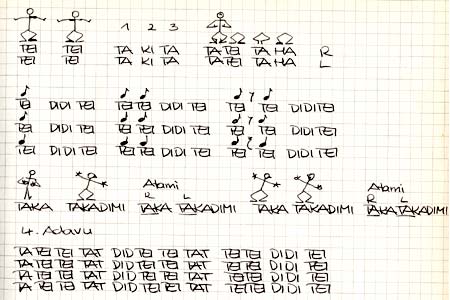 1 2 3
TEI TEI TA KI TA TATEI TA HA R
TEI TEI TA KI TA TATEI TA HA L
TEI DIDI TEI TEI TEI DIDI TEI TEI TEI DIDI TEI
TEI DIDI TEI TEI TEI DIDI TEI TEI TEI DIDI TEI
TEI DIDI TEI TEI TEI DIDI TEI TEI TEI DIDI TEI
Atami Atami
R L R L
TAKA TAKADIMI TAKA TAKADIMI TAKA TAKADIMI TAKATAKADIMI
4. Adavu
TA TEI TEI TAT DID TEI TEI TAT TEI TEI DIDI TEI
TA TEI TEI TAT DID TEI TEI TAT TEI TEI DIDI TEI
TA TEI TEI TAT DID TEI TEI TAT TEI TEI DIDI TEI
TA TEI TEI TAT DID TEI TEI TAT TEI TEI DIDI TEI